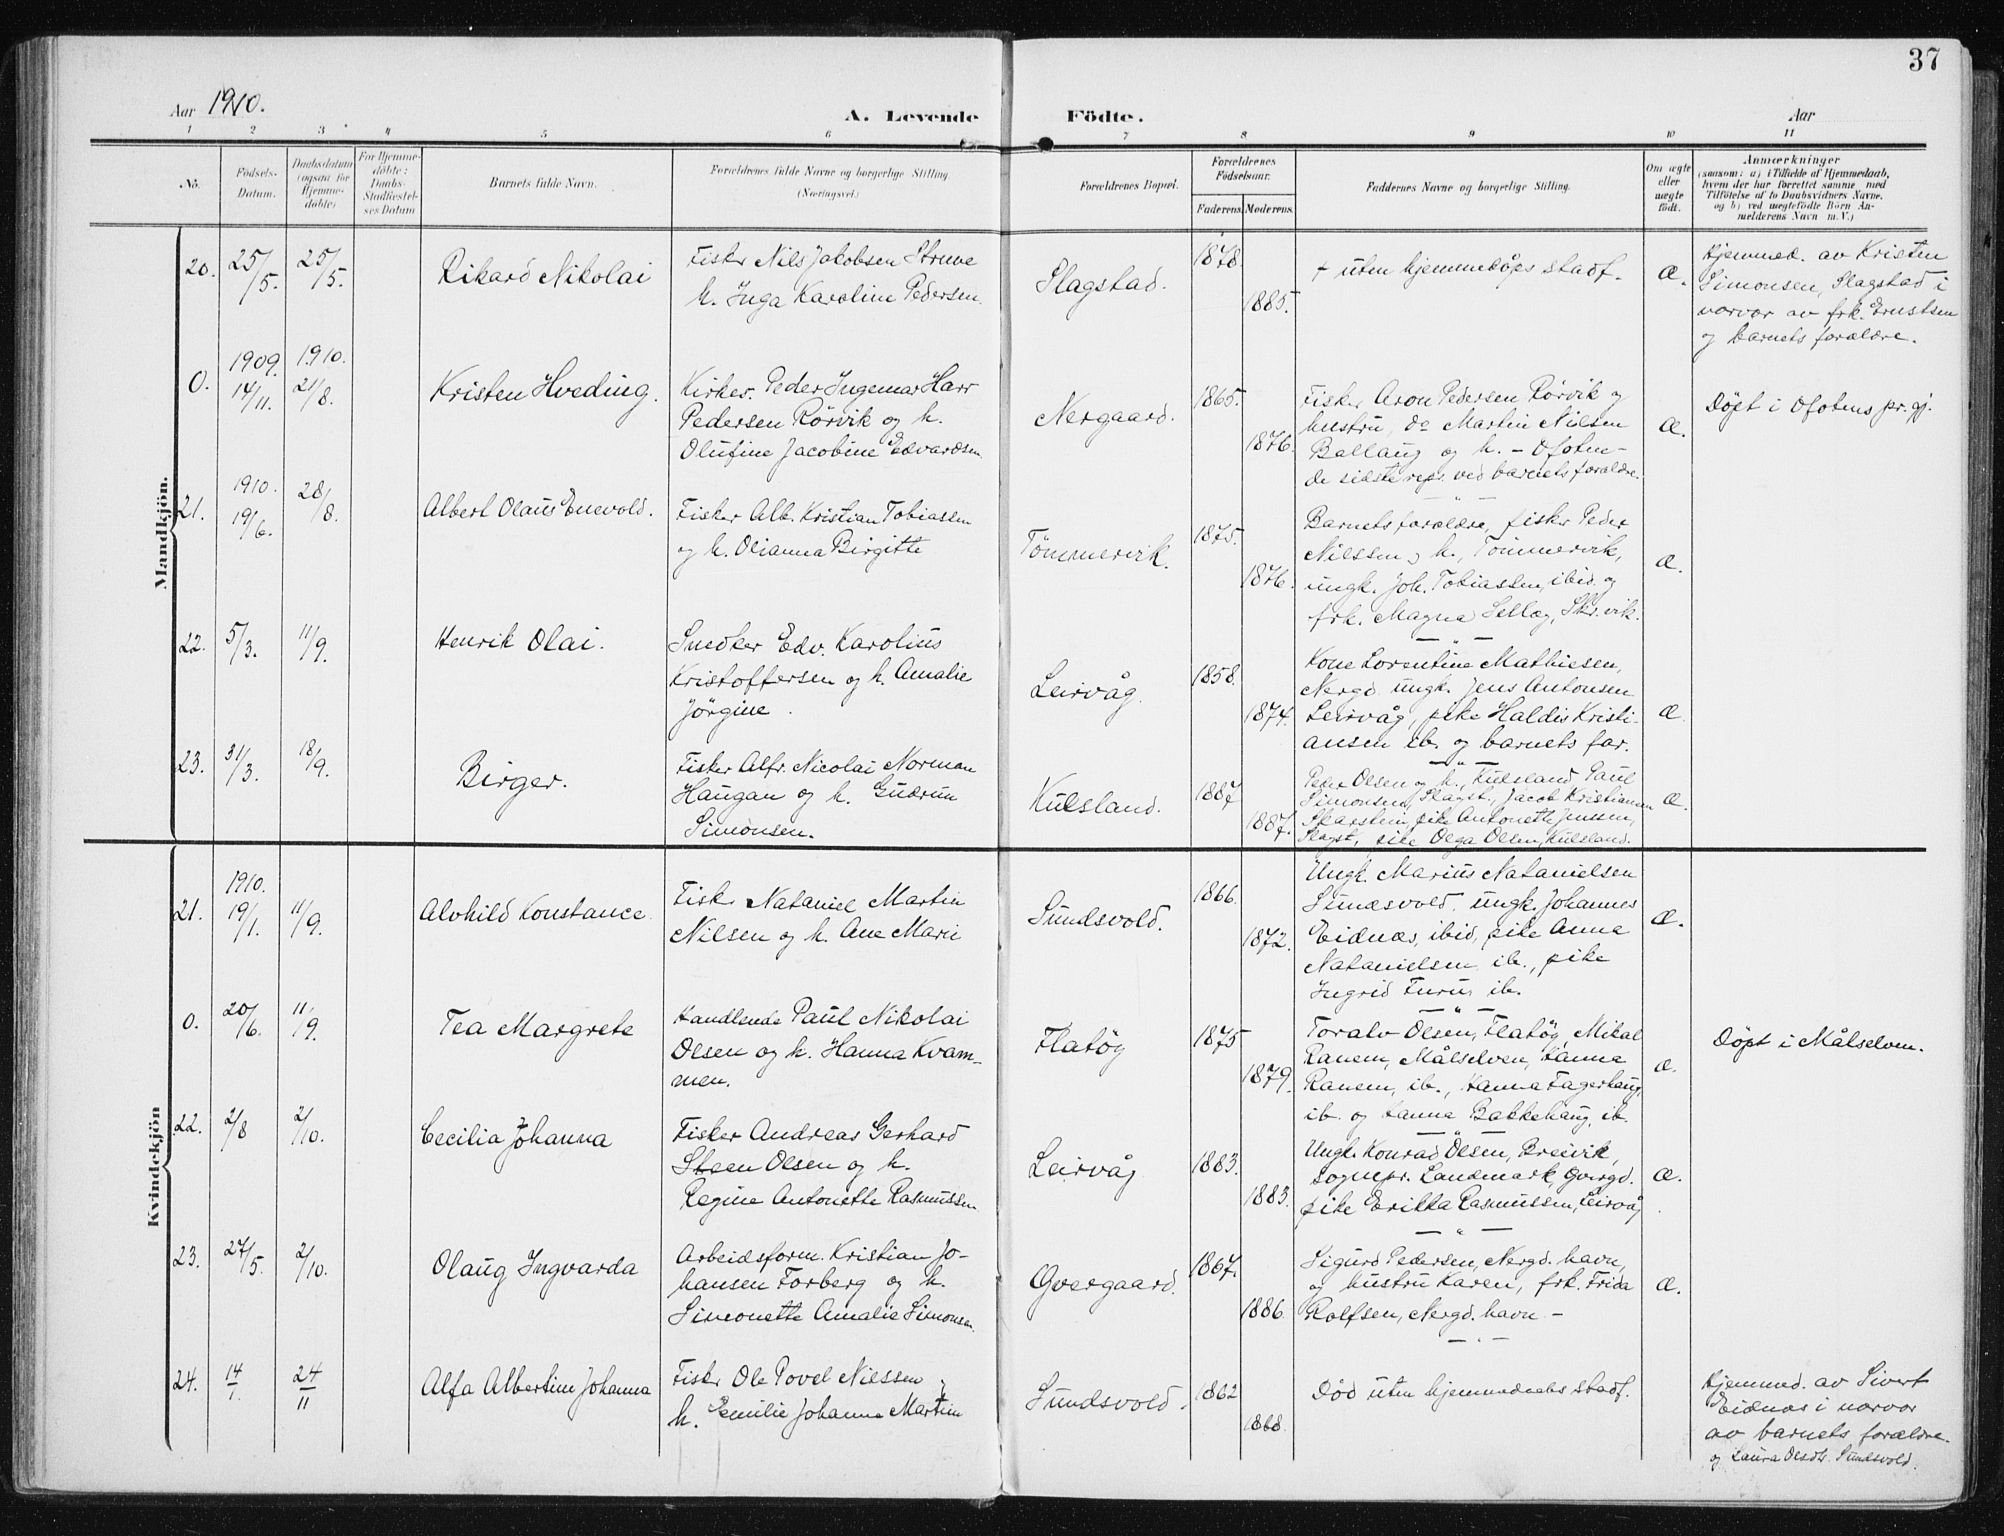 37
Aar 1910.
A. Levende Födte.
Aar
1 2 3 4 5 6 7 8 9 10 11
No.
Födsels-Datum.
Daabsdatum (ogsaa for Hjemme-döbte)
For Hjemme-döbte: Daabs-Stadfæstel-ses Datum
Barnets fulde Navn.
Forældrenes fulde Navne og borgerlige Stilling (Næringsvei.)
Forældrenes Bopæl.
Forældrenes Födselsaar.
Faderens. Moderens.
Faddernes Navne og borgerlige Stilling.
Om ægte eller uægte födt.
Anmærkninger
(saasom: a) i Tilfælde af Hjemmedaab,
hvem der har forrettet samme med
Tilföielse af to Daabsvidners Navne,
og b) ved uægtefödte Börn An-
melderens Navn m. V.)
Mandkjön.
20. 25/5. 25/5. Rikard Nikolai
Fisker Nils Jakobsen Struve
h. Inga Karoline Pedersen.
Slagstad. 1878. 1885.
+ uten hjemmedåps stadf. Æ.
Hjemmed. av Kristen
Simonsen, Slagstad i
nærvær av frk. Ernstsen
og barnets forældre.
0. 1909. 14/11. 1910. 21/8. Kristen Hveding.
Kirkes. Peder Ingemar Harr
Pedersen Rörvik og h.
Olufine Jacobine Edvardsen
Nergaard. 1865. 1876.
Fisker Aron Pedersen Rörvik og
hustru, do Martin Nilsen
Ballang og h. – Ofoten –
de sidste reps. ved barnets forældre.
Æ.
Döpt i Ofotens pr.gj.
21. 1910. 19/6. 28/8. Albert Olaus Enevold.
Fisker Alb. Kristian Tobiassen
og h. Olianna Birgitte
Tömmervik. 1875. 1876.
Barnets forældre, fisker Peder
Nilssen og h., Tömmervik,
ungk. Joh. Tobiassen, ibid. og
frk. Magna Selløg, Skr.vik.
Æ.
22. 5/3. 11/9. Henrik Olai.
Snedker Edv. Karolius
Kristoffersen og h. Amalie
Jörgine.
Leirvåg. 1858. 1874.
Kone Lorentine Mathiesen,
Nergd. ungk. Jens Antonsen
Leirvåg, pike Haldis Kristi-
ansen ib. og barnets far.
Æ.
23. 31/3. 18/9. Birger.
Fisker Alfr. Nicolai Norman
Haugan og h. Gudrun
Simonsen.
Kulsland. 1887 1887.
Peder Olsen og h., Kulsland, Paul
Simonsen, Slagst., Jacob Kristiansen
Skarstein, pike Antonette Jenssen,
Slagst., pike Olga Olsen, Kulsland.
Æ.
Kvindekjön
21. 1910. 19/1. 11/9. Alvhild Konstance
Fisker Nataniel Martin
Nilsen og h. Ane Marie
Sundsvold. 1866. 1872.
Ungk. Marius Natanielsen
Sundsvold, ungk. Johannes
Eidnæs, ibid, pike Anna
Natanielsen ib., pike
Ingrid Furu, ib.
Æ.
0. 20/6. 11/9. Tea Margrete
Handlende Paul Nikolai
Olsen og h. Hanna Kvam-
men.
Flatöy 1875 1879.
Toralv Olsen, Flatöy, Mikal
Ranem, Målselven, Hanna
Ranem, ib., Hanna Fagerhaug,
ib. og Hanna Bakkehaug, ib.
Æ.
Döpt i Målselven.
22. 2/8 2/10. Cecilia Johanna
Fisker Andreas Gerhard
Steen Olsen og h.
Regine Antonette Rasmussen
Leirvåg 1883. 1883.
Ungk. Konrad Olsen, Breivik,
sognepr. Landmark, Gvergd.
pike Erikka Rasmussen, Leirvåg
Æ.
23. 27/5. 2/10. Olaug Ingvarda
Arbeidsform. Kristian Jo-
hansen Forberg og h.
Simonette Amalie Simonsen.
Qvergaard. 1867. 1886.
Sigurd Pedersen, Nergd. havn,
og hustru Karen, frk. Frida
Rolfsen, Nergd. havn –
Æ.
24. 14/1. 24/11 Alfa Albertine Johanna
Fisker Ole Povel Nilssen og
h. Emilie Johanna Martine
Sundsvold. 1862 1868.
Död uten hjemmedåabs stadf.
Hjemmed. av Sivert
Eidnæs i nærvær
av barnets forældre.
og Laura Olsdtr. Sundsvold.